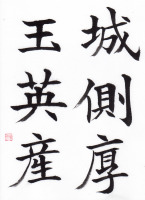 城側厚
王英産